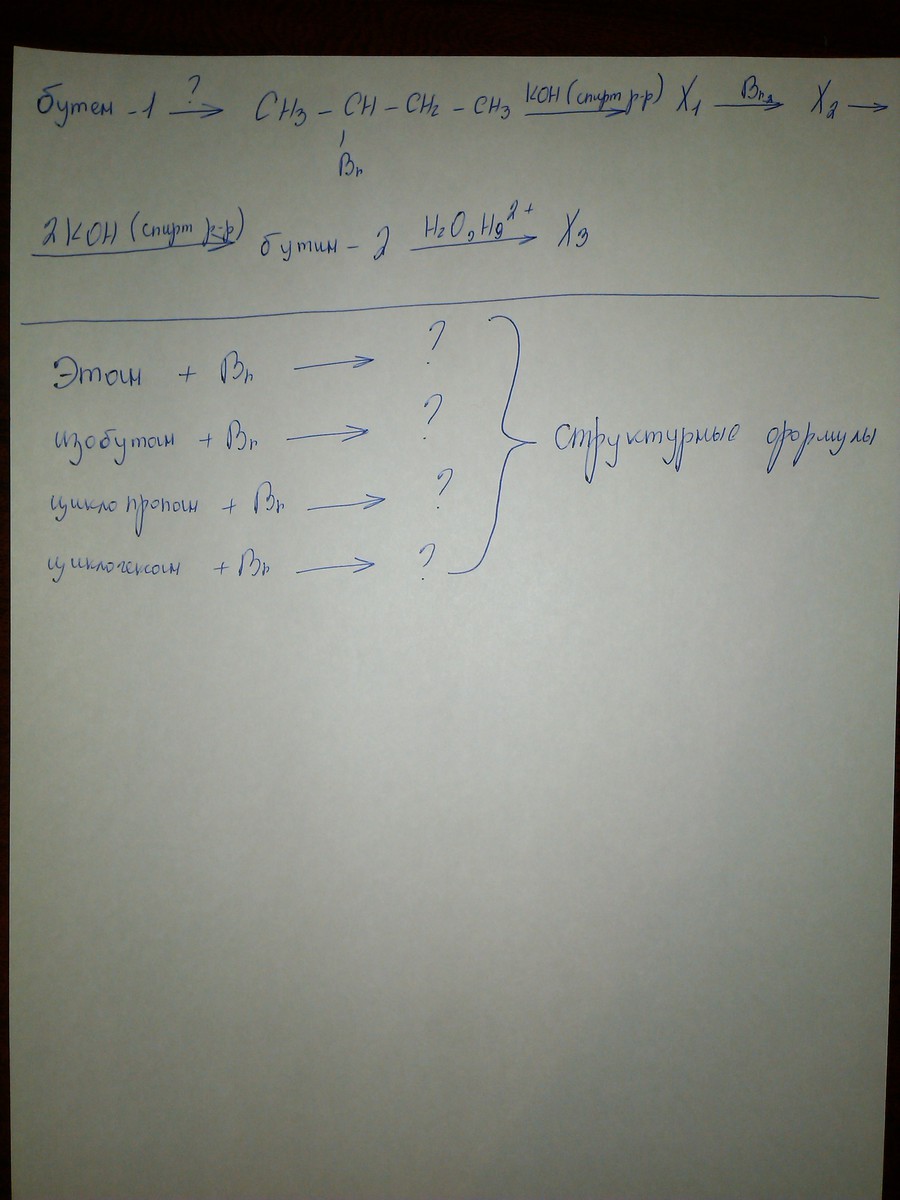 бутен -1 ? → CH₃ – CH – CH₂ – CH₃ KOH (спирт р-р) → X₁ Br₂ → X₂ →
Br
2 KOH (спирт р-р) → бутин - 2 H₂O, Hg²⁺ → X₃
Этан + Br₂ → ?
изобутан + Br₂ → ?
циклопропан + Br₂ → ?
циклогексан + Br₂ → ?
структурные формулы